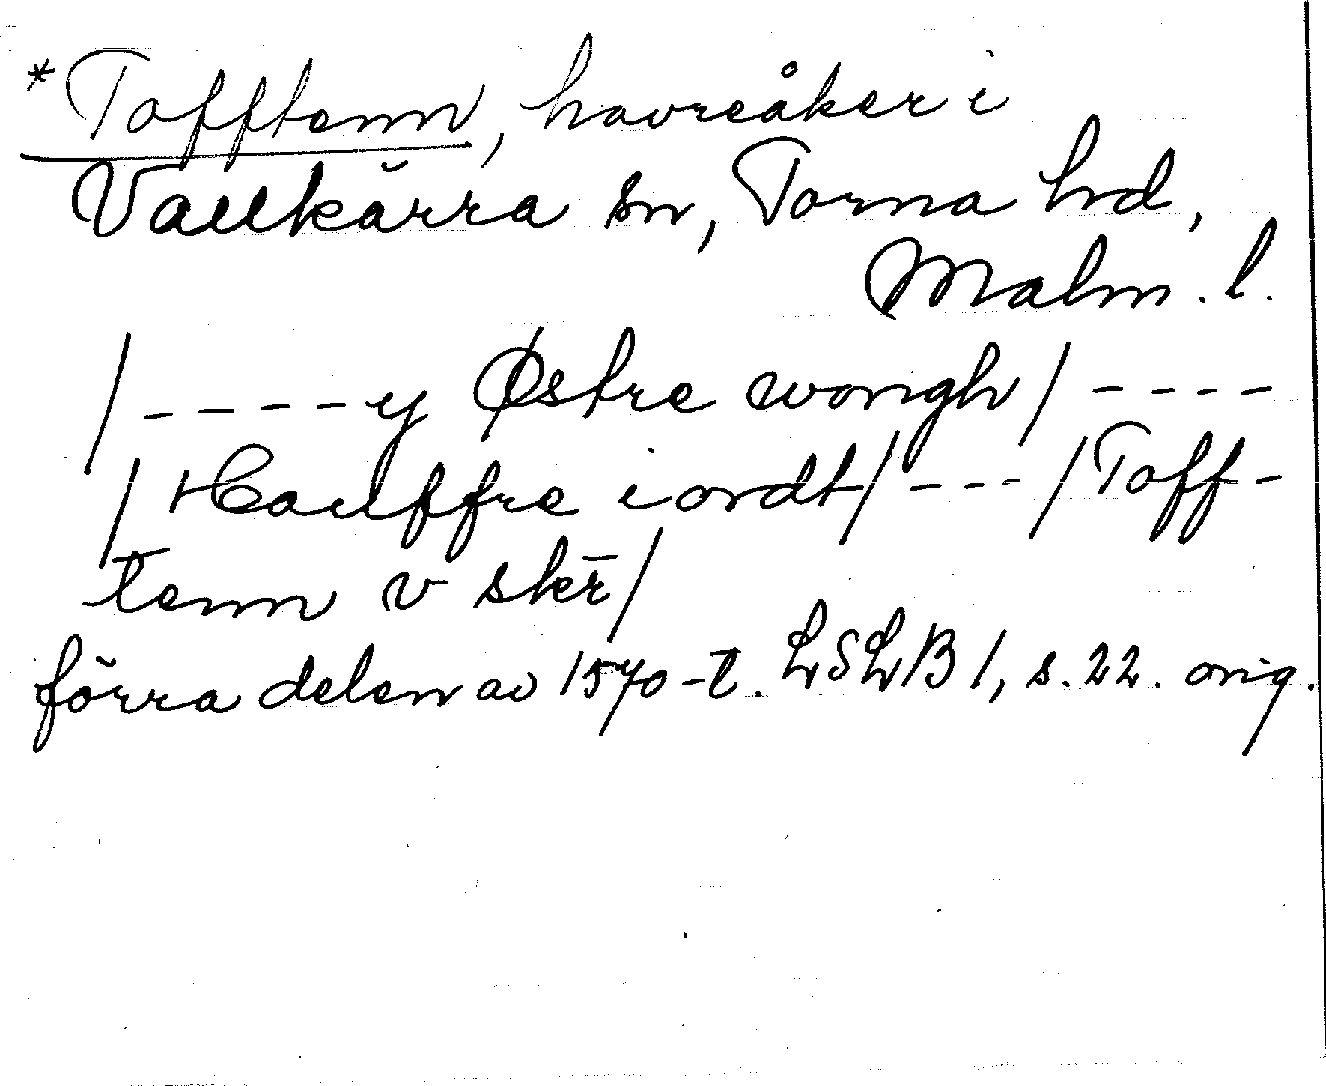 *Tofftenn, havreåker i
Vallkärra sn, Torna hd,
Malm. l.
/ - - - - y Østre wongh / - - - -
/ Hauffre iordt / - - - / Toff-
tenn v skr̄ /
förra delen av 1570-t. LSLB 1, s. 22. orig.